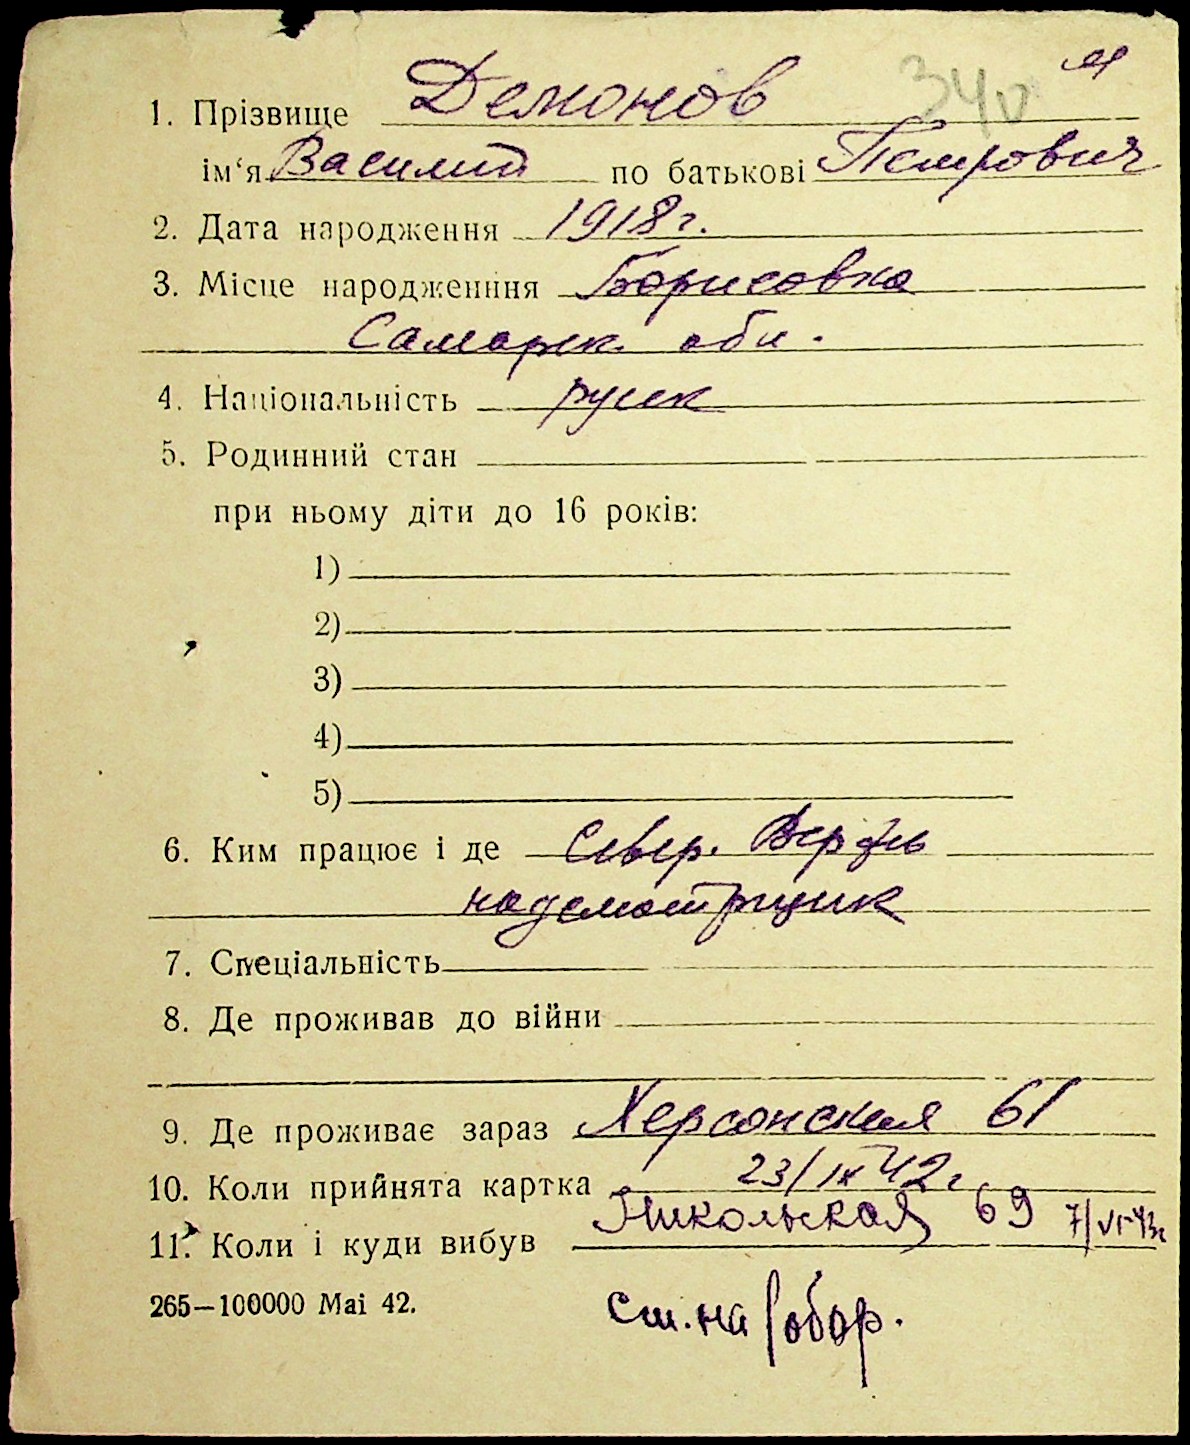 м
340
1. Прізвище Демонов
ім'я Василий по батькові Петрович
2. Дата народження 1918 г.
3. Місце народженння Борисовка
Самарск. обл.
4. Національність русск
5. Родинний стан
при ньому діти до 16 років:
1)
2)
3)
4)
5)
6. Ким працює і де Север. Верфь
надсмотрщик
7. Спеціальність
8. Де проживав до війни
9. Де проживає зараз Херсонская 61
10. Коли прийнята картка 23/IX 42 г
Никольская 69 7/VI-43г
11. Коли і куди вибув
265—100000 Mai 42.
см. на обор.